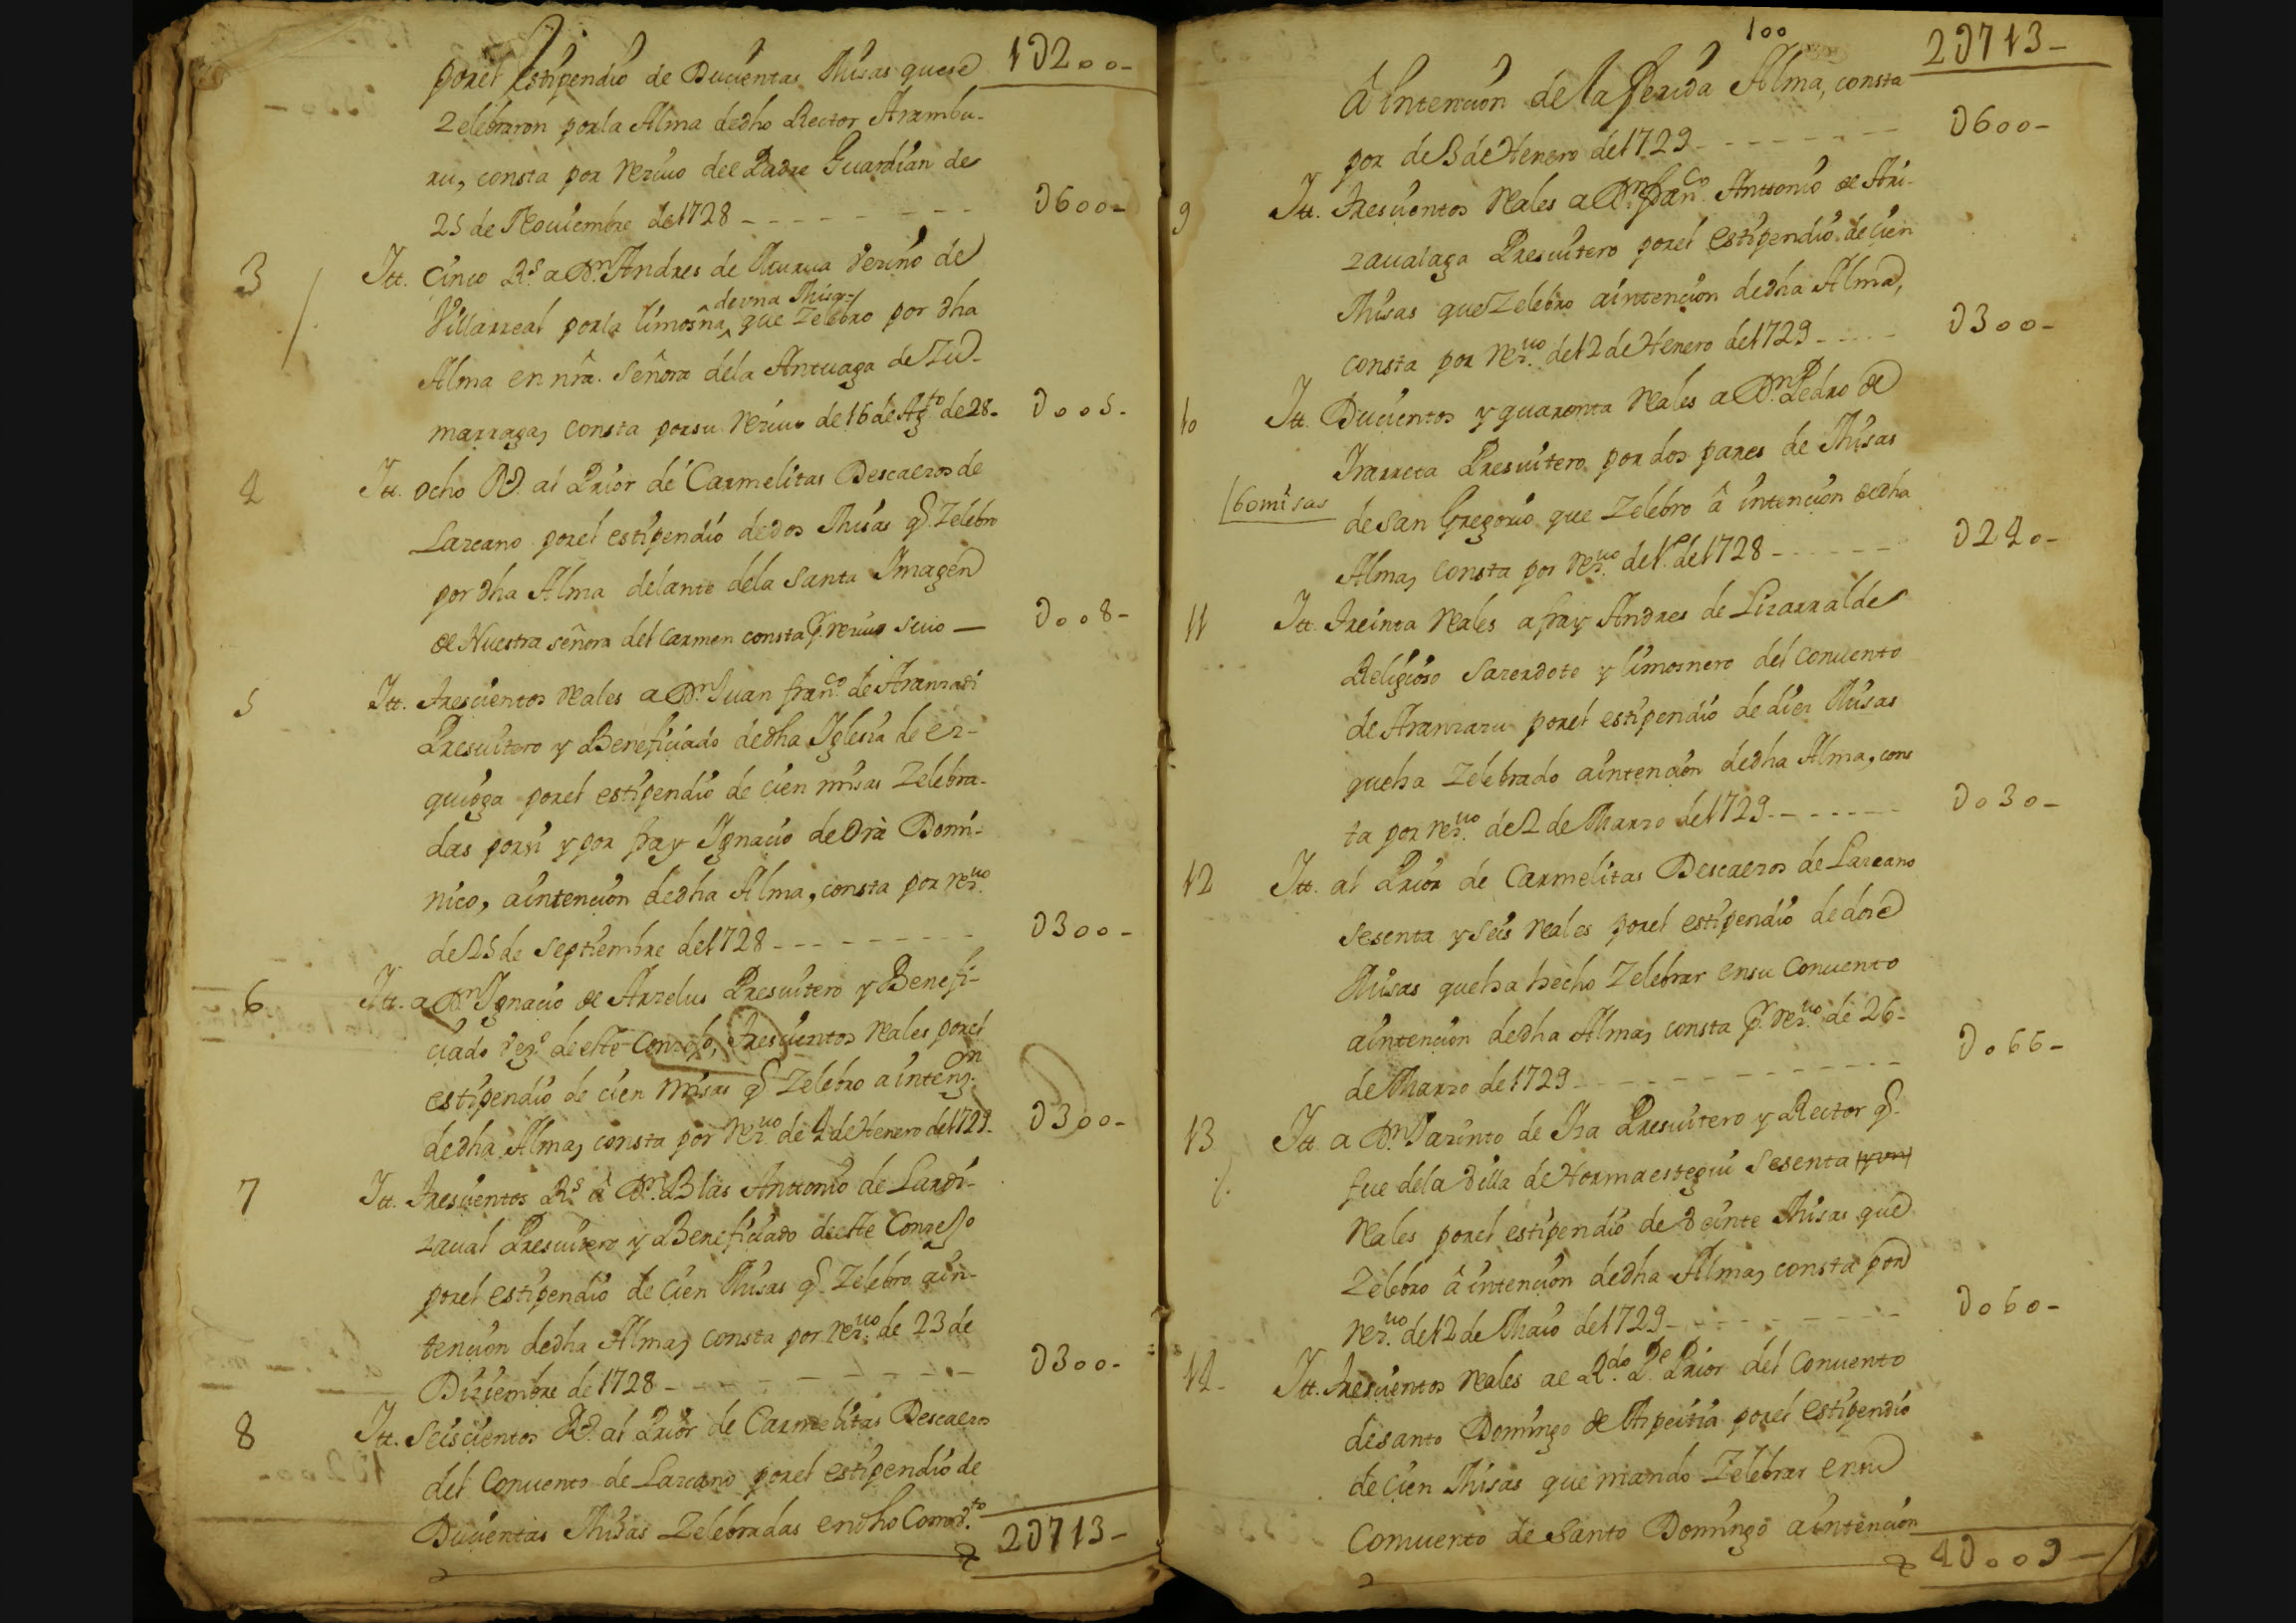 1U200-
por el estipendio de Ducientas Misas que se
Zelebraron por la Alma dedho Rector Arambu-
ru, consta por reciuo del Padre Guardian de
25 de Nouiembre del 1728 - - - - - - - - U600-
3 Itt. Cinco Rs. a Dn. Andres de Vecino de
de vna Misa
Villarreal por la limosna que Zelebro por dha
Alma en nra. Señora dela Antiuaga de Zu-
marraga, consta por su reciuo de 16 de Agto. de 28- U005-
4 Itt. ocho Rs. al Prior de Carmelitas Descalzos de
Lazcano por el estipendio de dos Misas q. Zelebro
por dha Alma delante dela Santa Imagen
de Nuestra señora del Carmen consta p. reciuo suio — U008-
5 Itt. Trescientos reales a Dn. Juan Franco. de Aranzadi
Presuitero y Beneficiado dedha Iglesia de ez-
quioga por el estipendio de cien misas Zelebra-
das por si y por fray Ignacio de Oria Domi-
nico, aintencion dedha Alma, consta por rezuo.
de 25 de Septiembre del 1728 - - - - - - - - U300-
6 Itt. a Dn. Ignacio de Arzelus Presuitero y Benefi-
ciado vezo. de este Conzejo, Trescientos reales por el
estipendio de cien Misas q. Zelebro a intenzon.
dedha Alma, consta por rezuo. de 2 de Henero del 1729- U300-
7 Itt. Trescientos Rs. â Dn. Blas Anttonio de Lardi-
zaual Presuitero y Beneficiado deeste Conzejo
por el estipendio de Cien Misas q. Zelebro ain-
tencion dedha Alma, consta por rezuo. de 23 de
Diziembre de 1728 - - - - - - - - U300-
8 Itt. Seiscientos Rs. al Prior de Carmelitas Descalzos
del Conuento de Lazcano por el estipendio de
Ducientas Misas Zelebradas en dho Comvto.
2U713-
100
2U713-
â intencion de la referida Alma, consta
por de 3 de Henero del 1729 - - - - - - U600-
9 Itt. Trescientos reales a Dn. Franco. Anttonio de Ari-
zaualaga Presuitero por el estipendio de cien
Misas que Zelebro aintencion dedha Alma,
consta por rezuo. del 2 de Henero del 1729 - - - - U300-
10 Itt. Ducientos y quarenta reales a Dn. Pedro de
Irarreta Presuitero por dos pares de Misas
60 misas de san Gregorio que Zelebro â intencion dedha
Alma, consta por rezuo. del 1o. de 1728 - - - - - - U240-
11 Itt. Treinta reales a fray Andres de Lizarralde
Religioso Sacerdote y limosnero del conuento
de Aranzazu por el estipendio de diez Misas
que ha Zelebrado aintencion dedha Alma, cons
ta por rezuo. de 2 de Marzo del 1729 - - - - - - U030-
12 Itt. al Prior de Carmelitas Descalzos de Lazcano
Sesenta y Seis reales por el estipendio de doze
Misas que ha hecho Zelebrar ensu Conuento
aintencion dedha Alma, consta p. rezuo. de 26-
de Marzo de 1729 - - - - - - - - U066-
13 Itt. a Dn. Jazinto de Iza Presuitero y Rector q.
fue dela Villa de Hormaestegui Sesenta
reales por el estipendio de Veinte Misas que
Zelebro â intencion dedha Alma, consta por
rezuo. del 2 de Maio del 1729 - - - - - - - - U060-
14- Itt. Trescientos reales al Rdo. Pe. Prior del Conuento
de santo Domingo de Azpeitia por el estipendio
de Cien Misas que mando Zelebrar en su
Conuento de Santo Domingo aintencion
4U009—